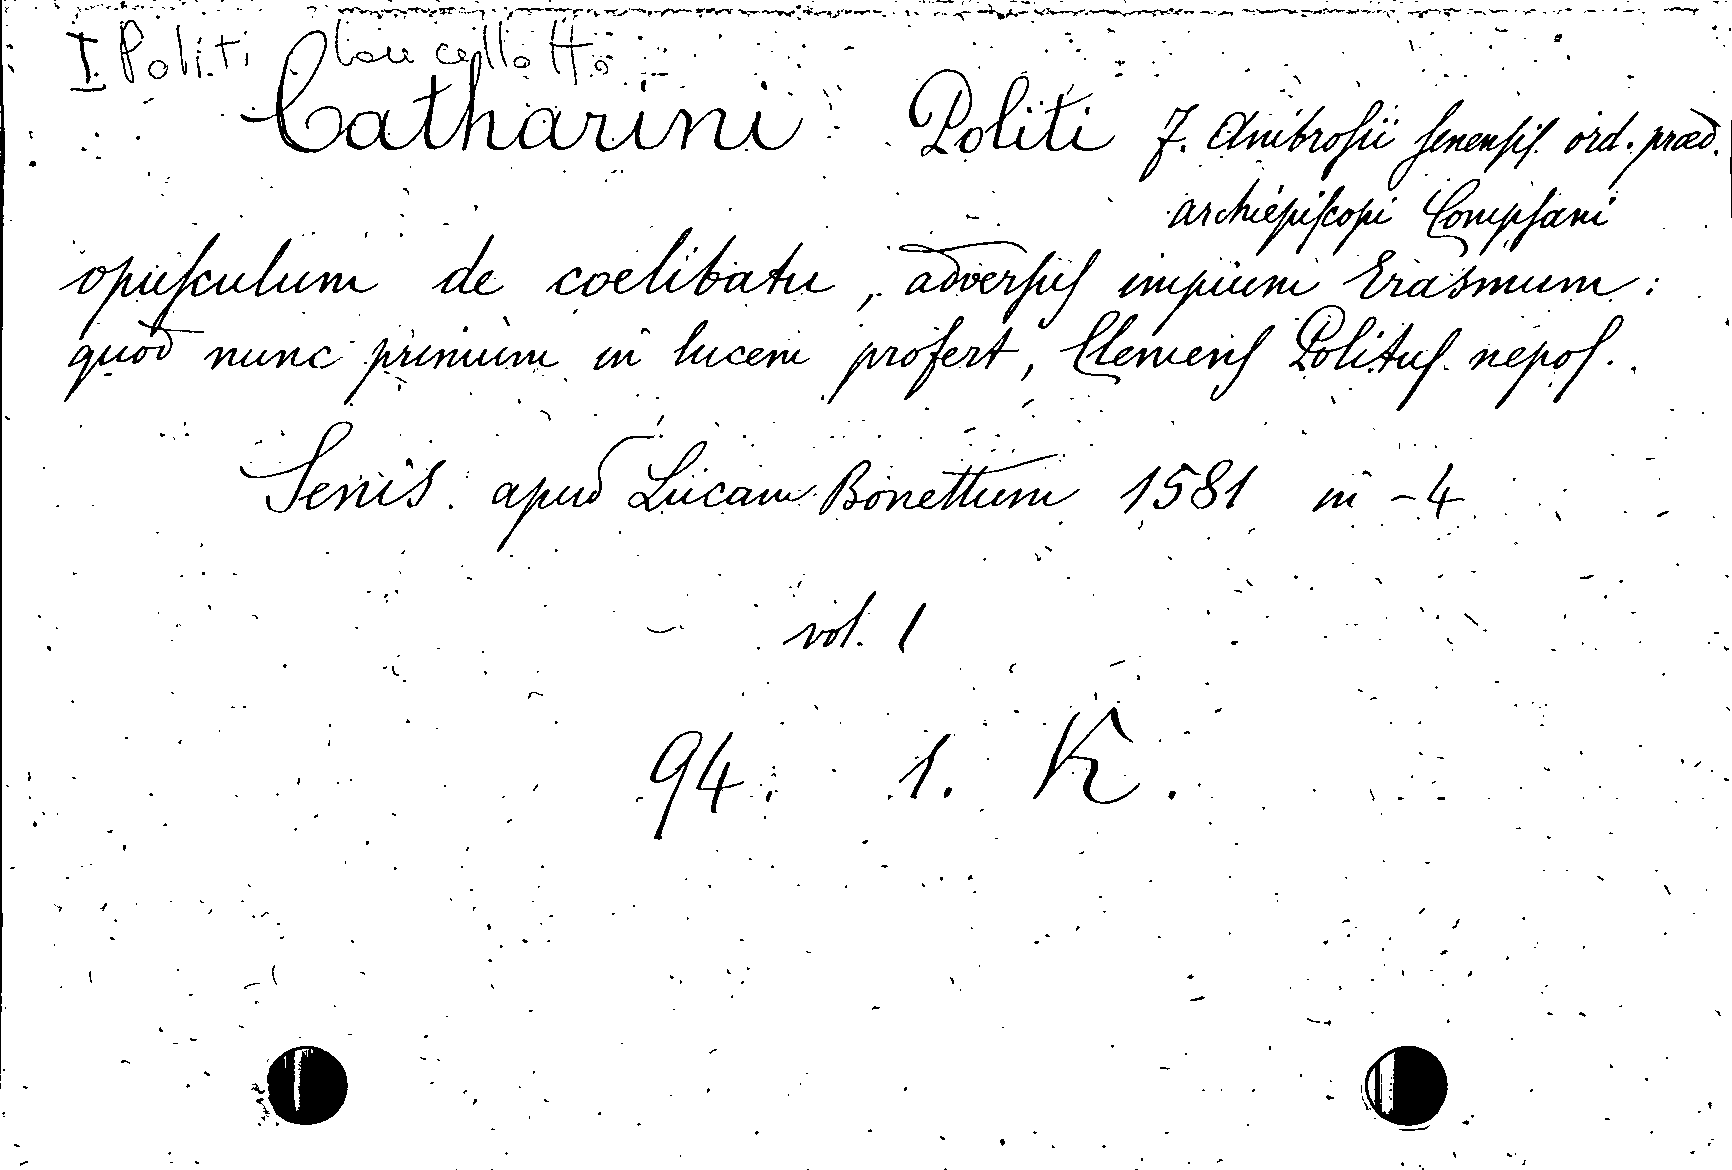 I Politi Lancellotto
Catharini Politi F. Ambrosii senensis ord. præd.
archiepiscopi Compsani
opusculum de coelibatu, adversus impium Erasmum:
quod nunc primum in lucem profert, Clemens Politus nepos.
Senis apud Lucam Bonettum 1581 in-4
vol. 1
94. 1. K.